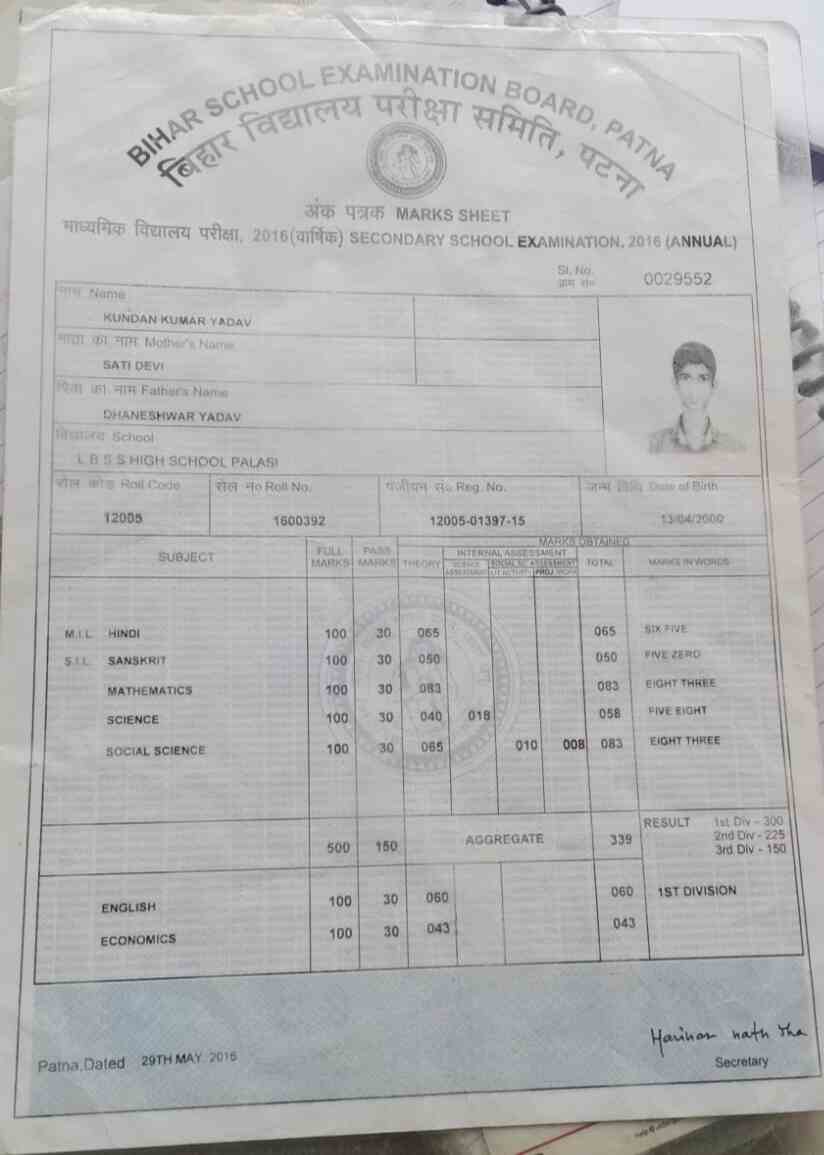 BIHAR SCHOOL EXAMINATION BOARD, PATNA
बिहार विद्यालय परीक्षा समिति, पटना
अंक पत्रक MARKS SHEET
माध्यमिक विद्यालय परीक्षा, 2016(वार्षिक) SECONDARY SCHOOL EXAMINATION, 2016 (ANNUAL)
Sl. No. 0029552
नाम Name
KUNDAN KUMAR YADAV
माता का नाम Mother's Name
SATI DEVI
पिता का नाम Father's Name
DHANESHWAR YADAV
विद्यालय School
L B S S HIGH SCHOOL PALASI
रोल कोड Roll Code रोल नं० Roll No. पंजीयन सं० Reg. No. जन्म तिथि Date of Birth
12005 1600392 12005-01397-15 13/04/2000
MARKS OBTAINED
SUBJECT FULL MARKS PASS MARKS THEORY INTERNAL ASSESSMENT TOTAL MARKS IN WORDS
M.I.L. HINDI 100 30 065 065 SIX FIVE
S.I.L. SANSKRIT 100 30 050 050 FIVE ZERO
MATHEMATICS 100 30 083 083 EIGHT THREE
SCIENCE 100 30 040 018 058 FIVE EIGHT
SOCIAL SCIENCE 100 30 065 010 008 083 EIGHT THREE
500 150 AGGREGATE 339 RESULT 1st Div - 300
2nd Div - 225
3rd Div - 150
ENGLISH 100 30 060 060 1ST DIVISION
ECONOMICS 100 30 043 043
Patna,Dated 29TH MAY 2016
Secretary